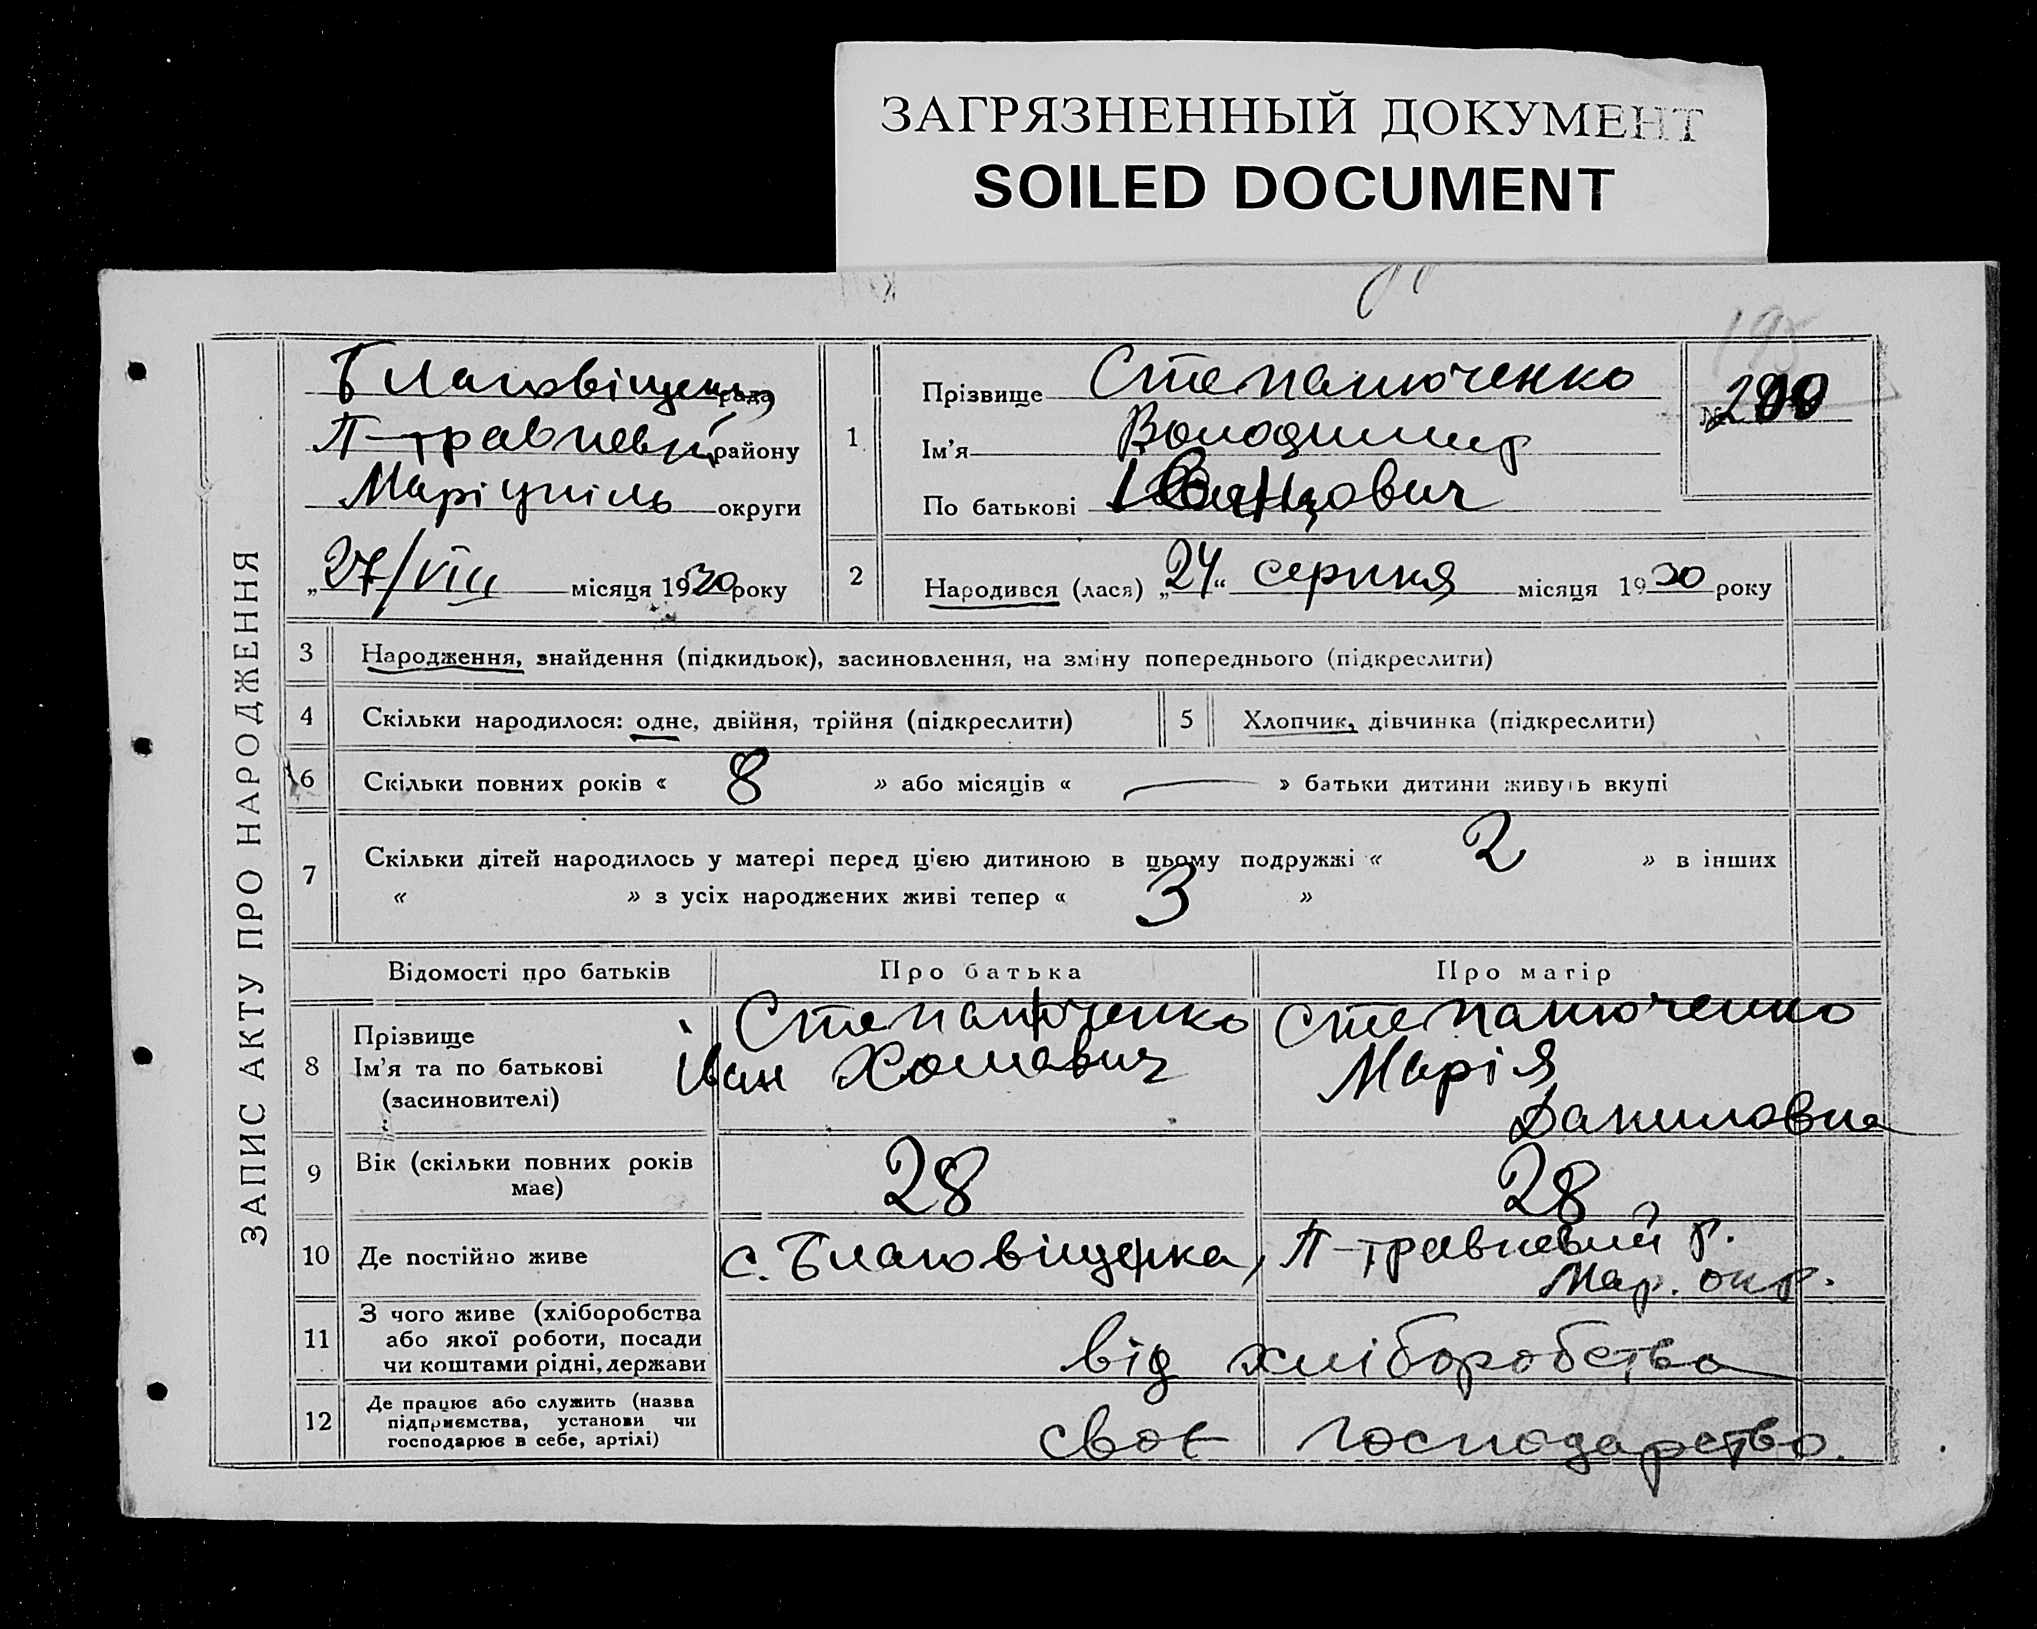 ЗАГРЯЗНЕННЫЙ ДОКУМЕНТ
SOILED DOCUMENT
195
ЗАПИС АКТУ ПРО НАРОДЖЕННЯ
Благовіщен. рада
П-травневий району
Маріупіль округи
„27/VIII місяця 1930 року
1
Прізвище Степанюченко
Ім'я Володимир
По батькові Іванович
№ 200
2
Народився (лася) „24“ серпня місяця 1930 року
3 Народження, знайдення (підкидьок), засиновлення, на зміну попереднього (підкреслити)
4 Скільки народилося: одне, двійня, трійня (підкреслити) 5 Хлопчик, дівчинка (підкреслити)
6 Скільки повних років « 8 » або місяців « — » батьки дитини живуть вкупі
7 Скільки дітей народилось у матері перед цією дитиною в цьому подружжі « 2 » в інших
« » з усіх народжених живі тепер « 3 »
Відомості про батьків Про батька Про матір
8 Прізвище Степанюченко Степанюченко
Ім'я та по батькові Іван Хомович Марія
(засиновителі) Даниловна
9 Вік (скільки повних років має) 28 28
10 Де постійно живе с. Благовіщенка, П-травневий р.
Мар. окр.
11 З чого живе (хліборобства
або якої роботи, посади
чи коштами рідні, держави від хліборобства
12 Де працює або служить (назва
підприємства, установи чи
господарює в себе, артілі) своє господарство.